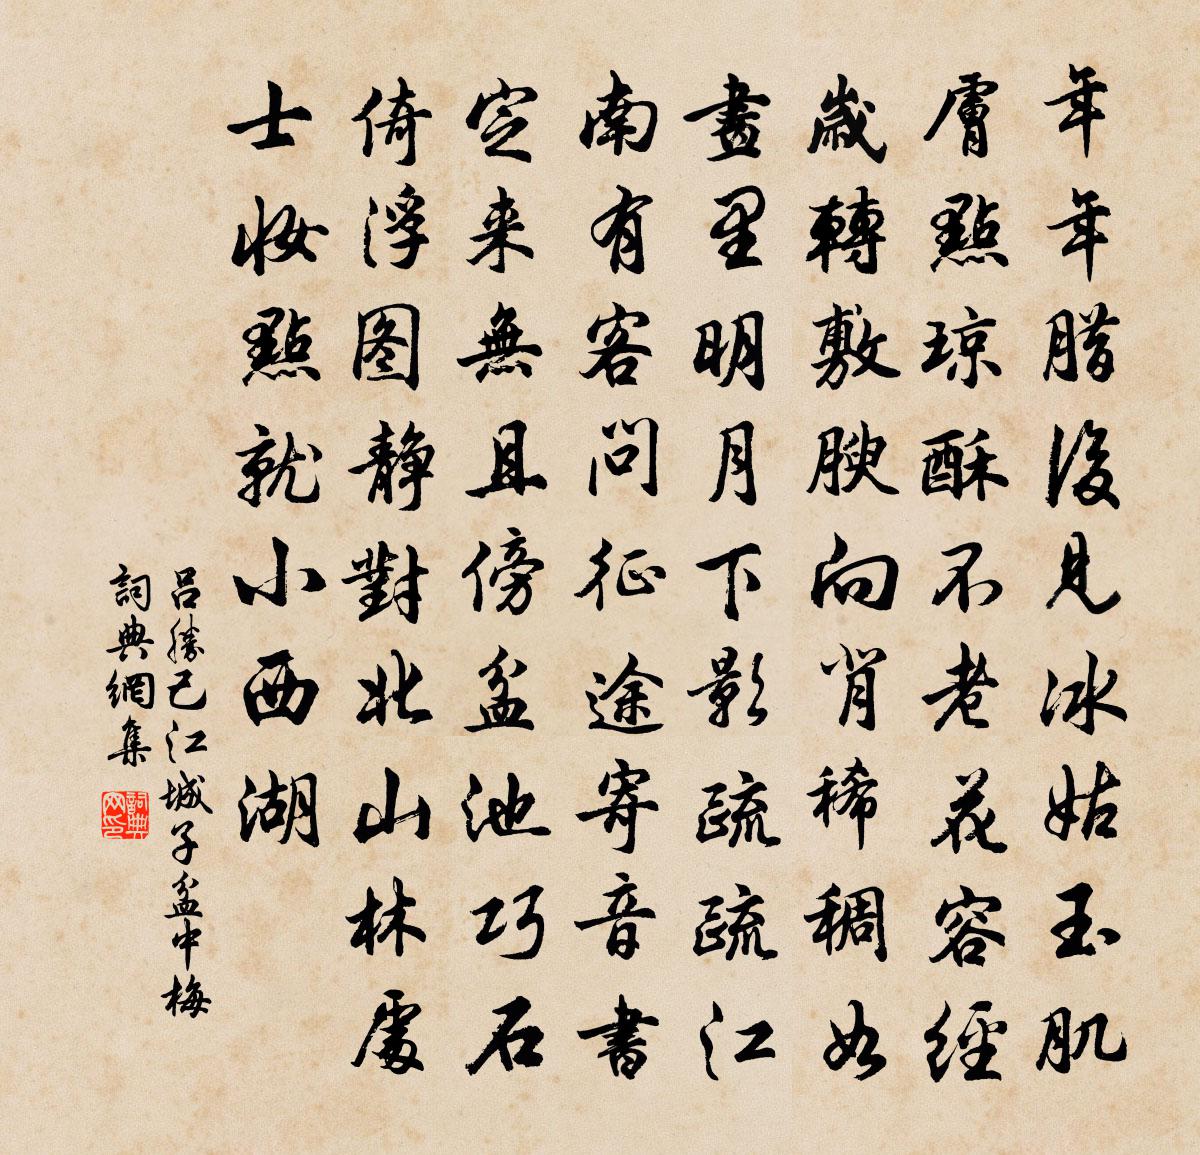 年年腊後見冰姑玉肌
膚點琼酥不老花容經
歲轉敷腴向背稀稠如
畫里明月下影疏疏江
南有客問征途寄音書
定来無且傍盆池巧石
倚浮图静對北山林處
士妆點就小西湖
吕勝己江城子盆中梅
詞典網集
詞典网印